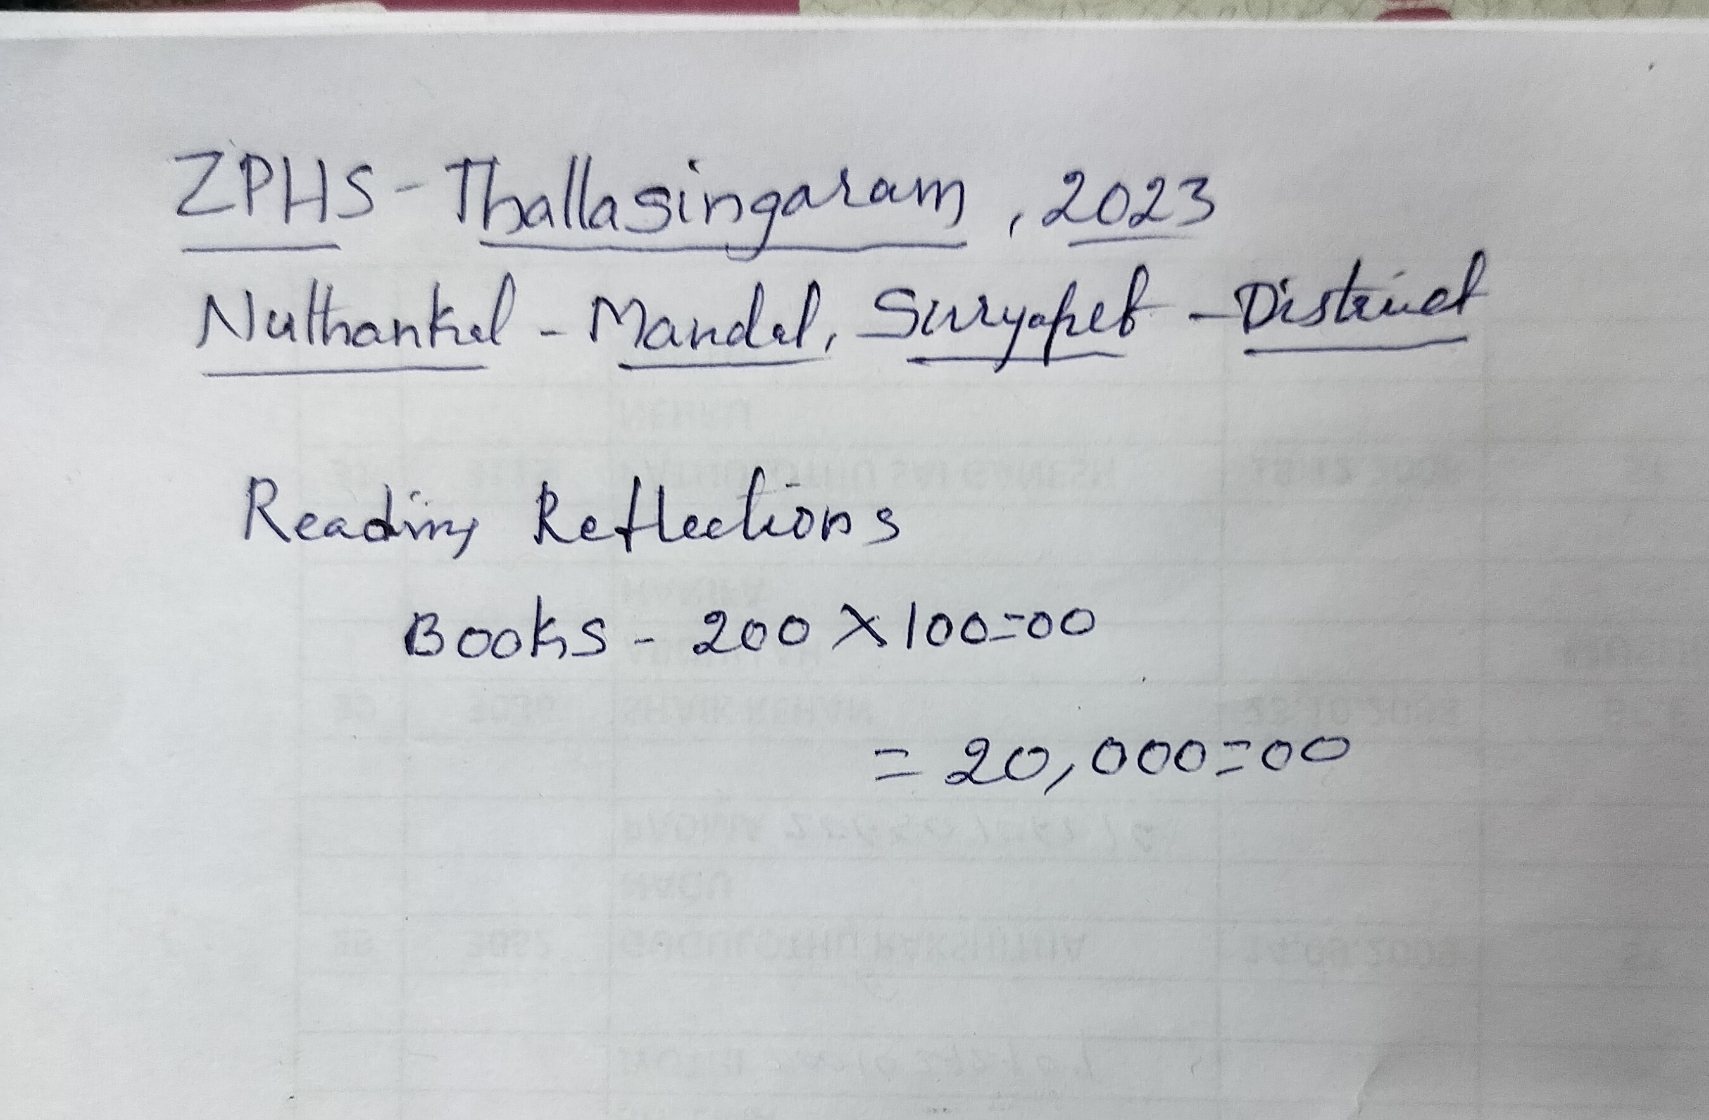 ZPHS - Thallasingaram, 2023
Nuthankal - Mandal, Suryapet - District
Reading Reflections
Books - 200 X 100=00
= 20,000=00